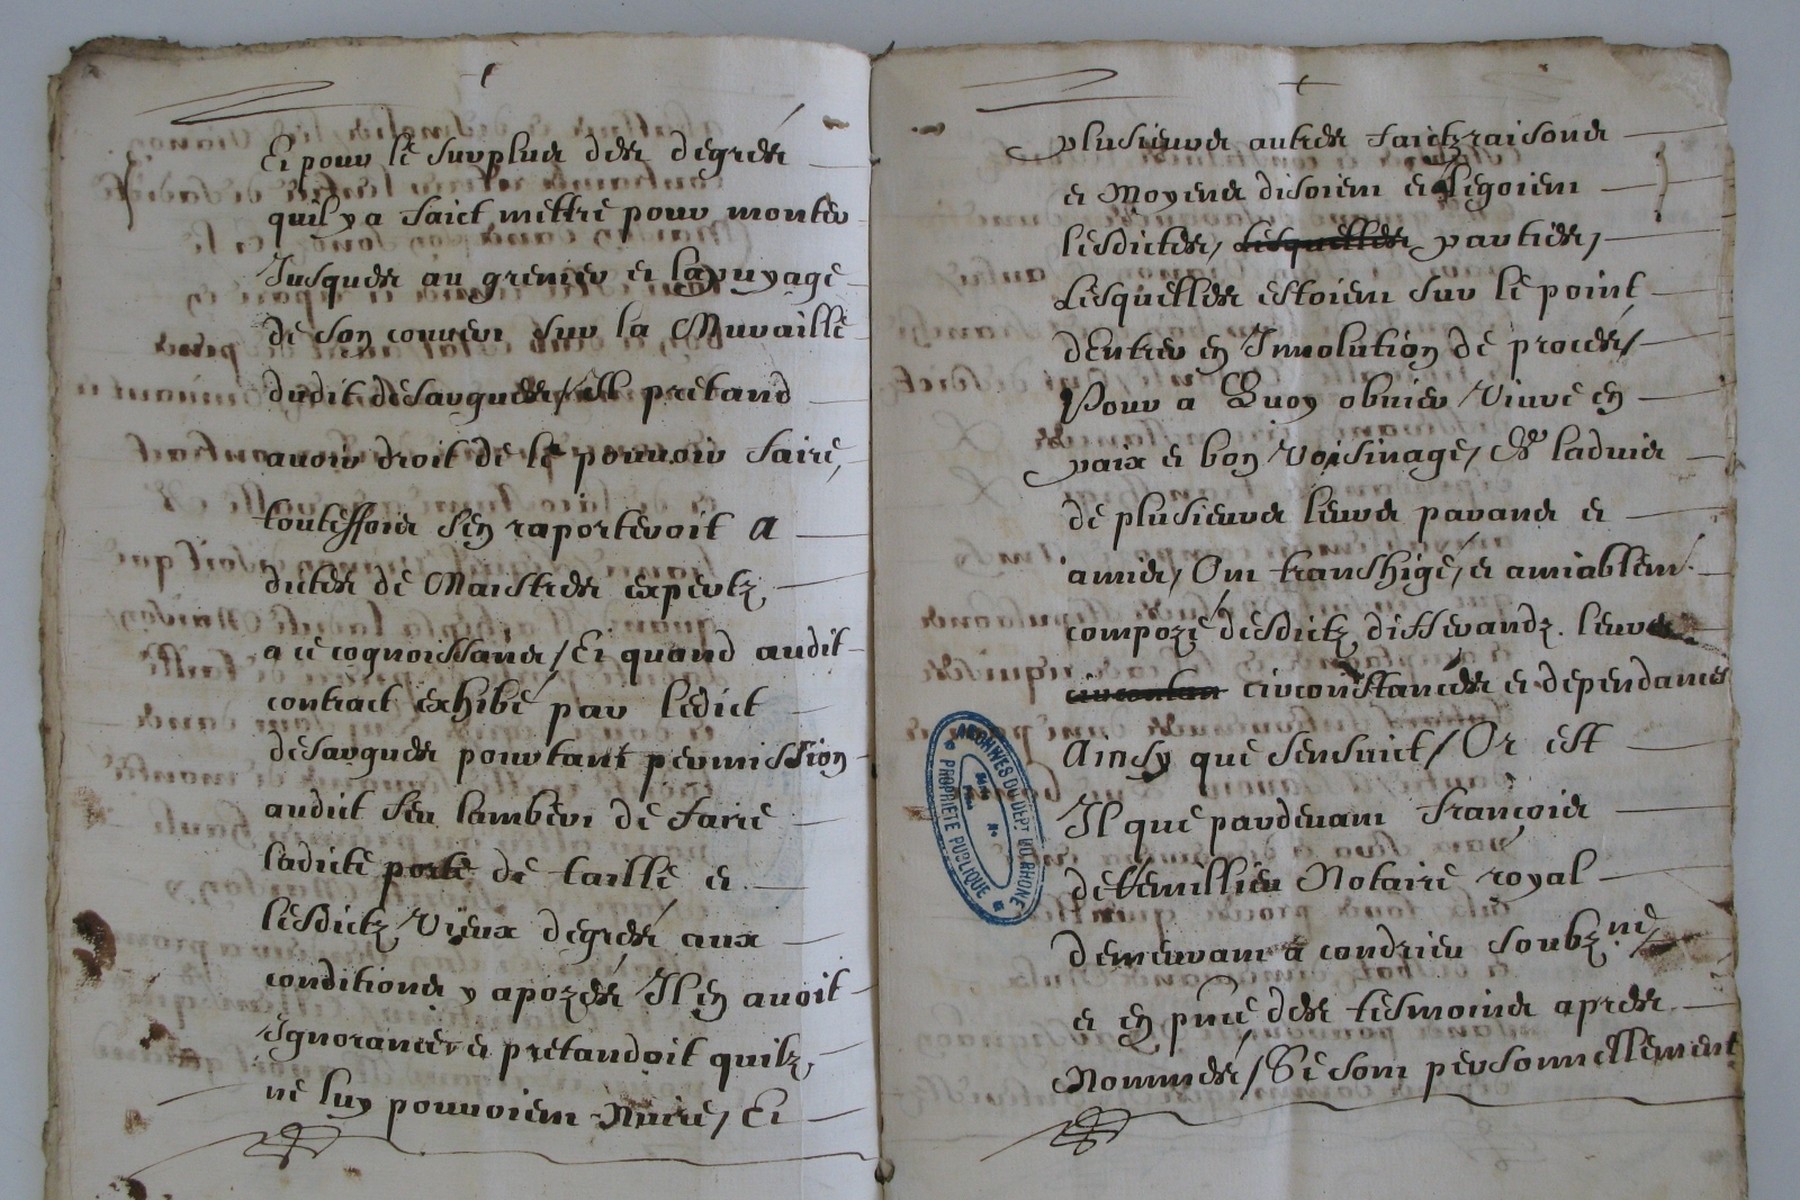 Et pour le surplus des degrés
quil y a faict mettre pour monter
Jusques au grenier et lapuyage
de son couvert sur la Muraille
dudit desargues / Il pretand
avoir droit de le pouvoir faire,
touteffois sen raporteroit a
dictes de Maistres expertz
a ce cognoissans / Et quand audit
contract exhibé par ledict
desargues pourtant permission
audict feu lambert de faire
ladicte porte de taille et
lesdictz vieux degrés aux
conditions y apozés Il en avoit
Ignorance et pretandoit quilz
ne luy pouvoient Nuire / Et
plusieurs autres faictz raisons
et Moyens disoient et legoient
lesdictes / lesquelles parties /
Lesquelles estoient sur le point
dentrer en Involution de procés /
Pour a Quoy obvier / Vivre en
paix et bon voisinage / & ladvis
de plusieurs leurs parans et
amis / Ont transhigé / et amiablemt
compozé desdictz differandz. leurs
circonstan circonstances et dependances
Ainsy que sensuict / Or est
Il que pardevant françois
deVermillieu Notaire royal
demeurant a condrieu soubzné /
et en pnce des tesmoins apres
Nommés / Se sont personnellement
ARCHIVES DU DEPT DU RHONE
PROPRIETE PUBLIQUE